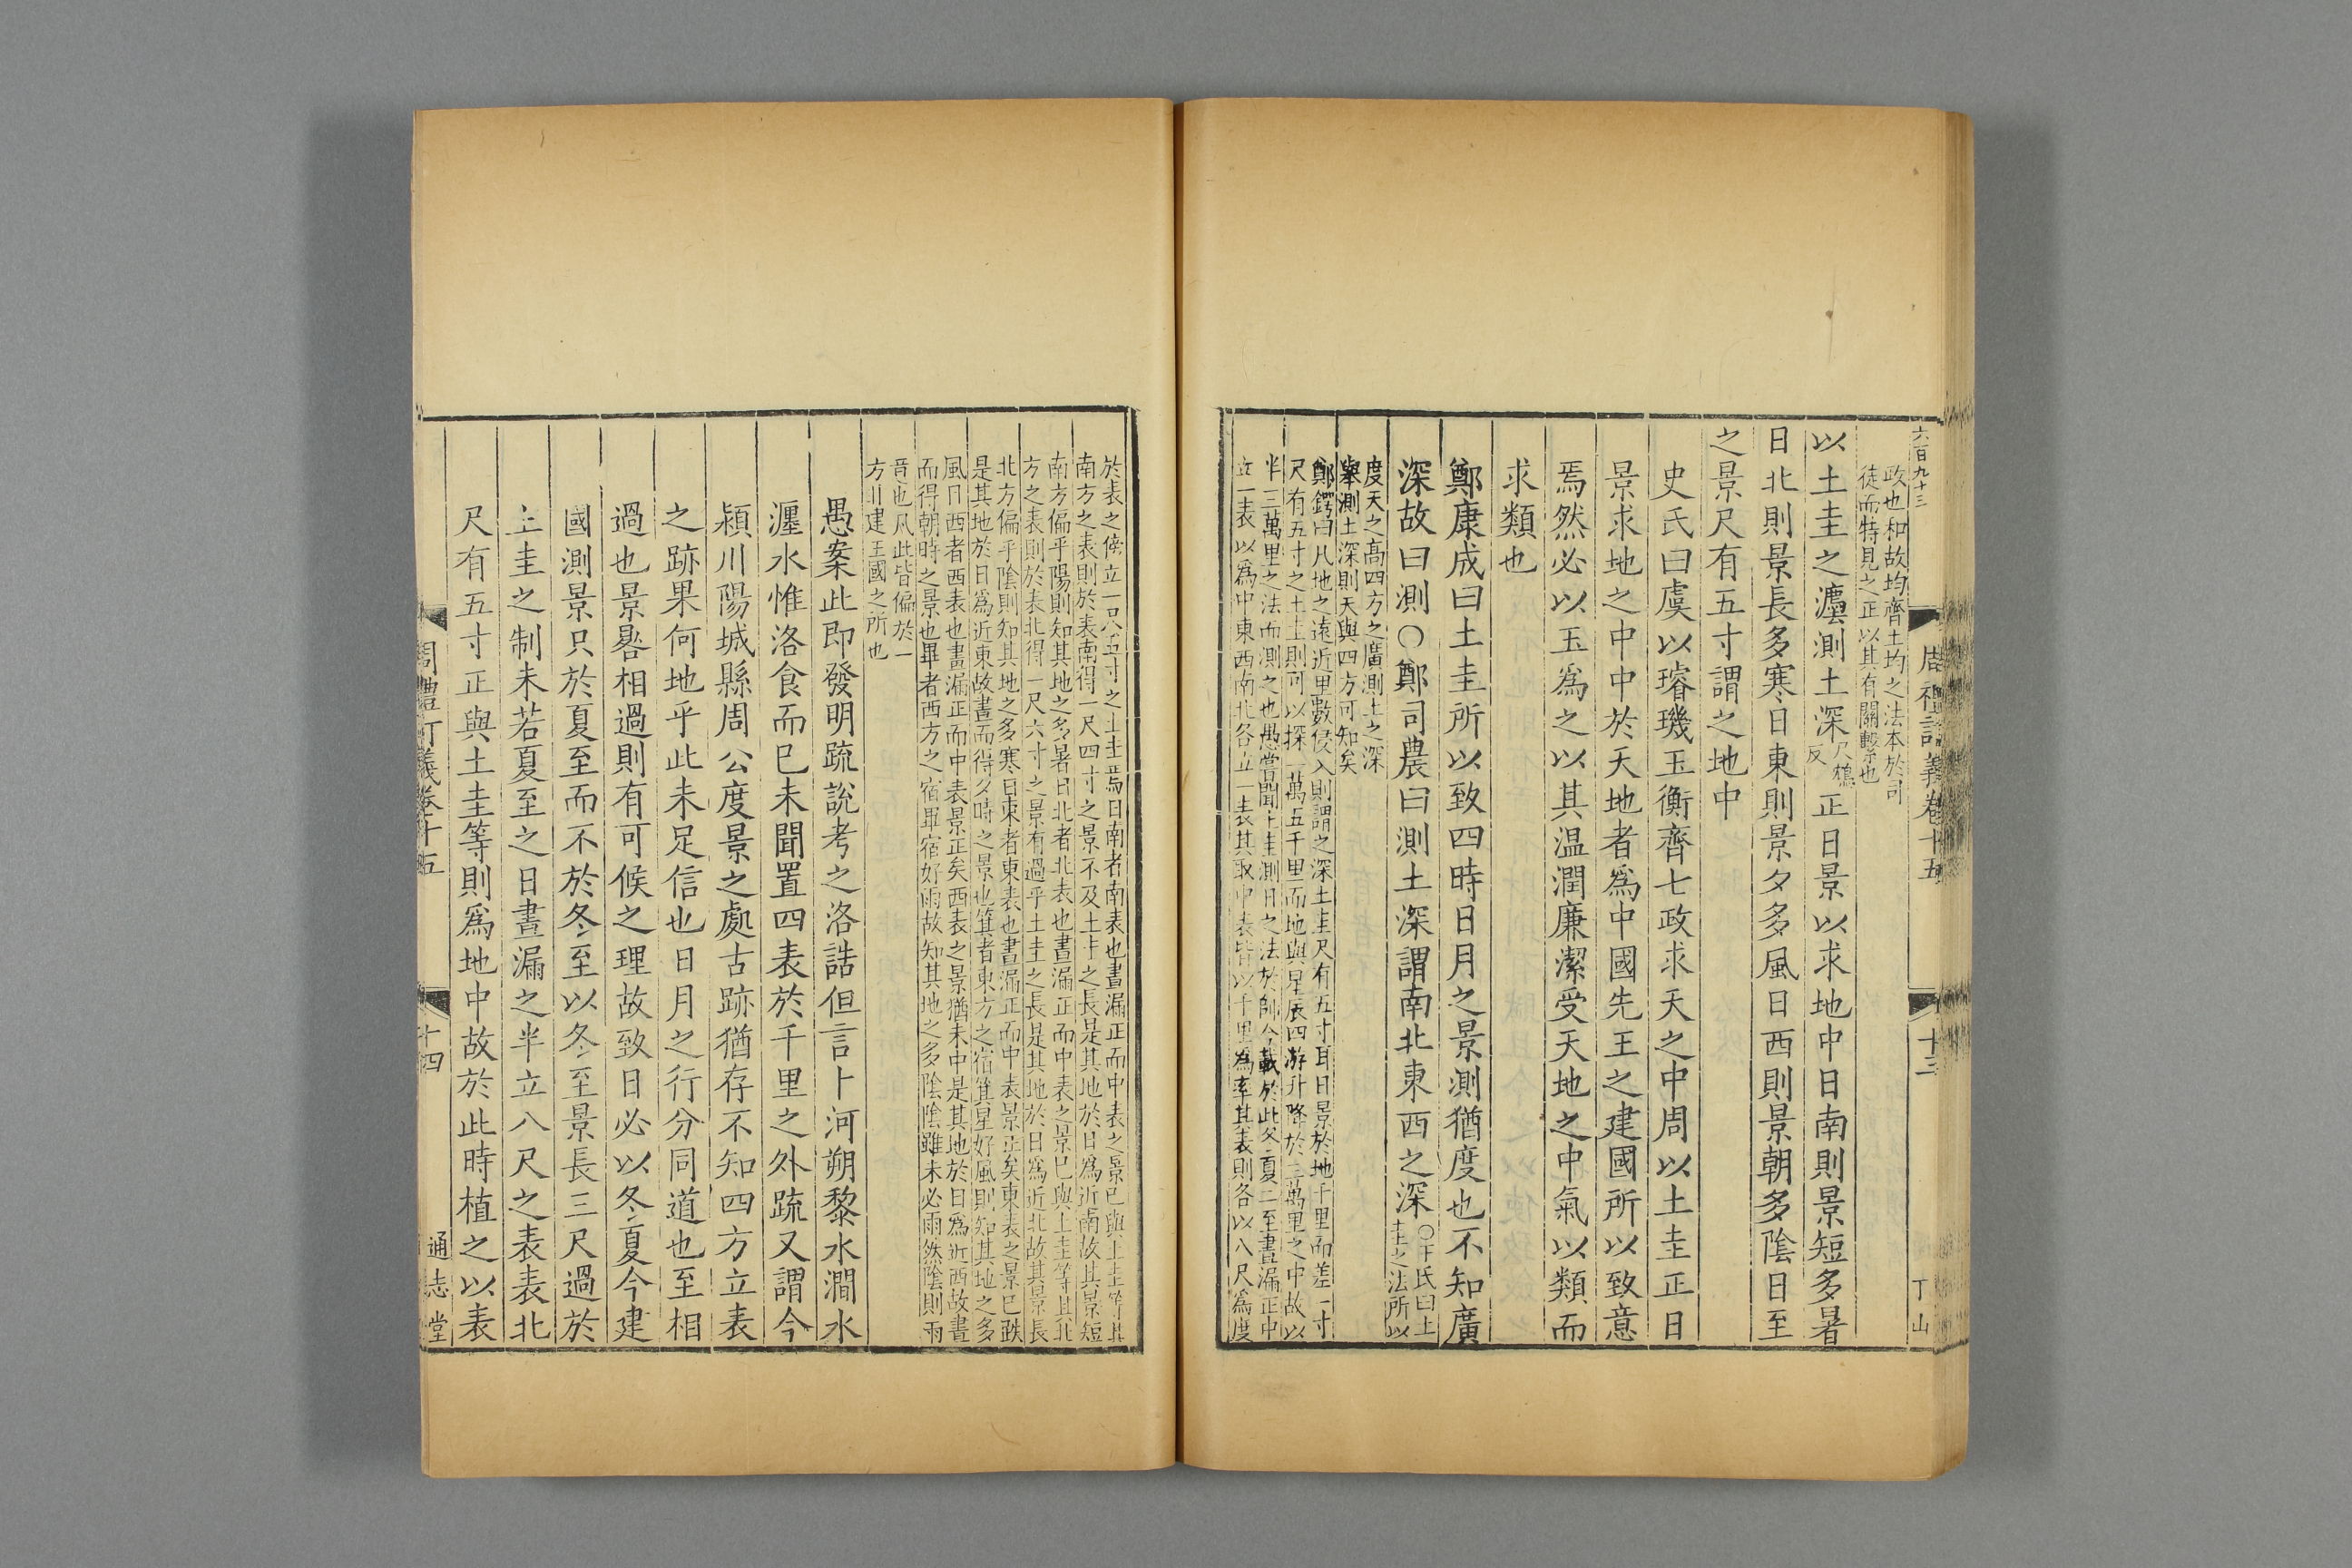 六百九十三
周禮訂義卷十五
十三
丁山
政也和故均齊土均之法本於司
徒而特見之正以其有關繫也
以土圭之灋測土深尺鴆反正日景以求地中日南則景短多暑
日北則景長多寒日東則景夕多風日西則景朝多陰日至
之景尺有五寸謂之地中
史氏曰虞以璿璣玉衡齊七政求天之中周以土圭正日
景求地之中中於天地者為中國先王之建國所以致意
焉然必以玉為之以其温潤廉潔受天地之中氣以類而
求類也
鄭康成曰土圭所以致四時日月之景測猶度也不知廣
深故曰測○鄭司農曰測土深謂南北東西之深○王氏曰土圭之法所以
度天之高四方之廣測土之深
舉測土深則天與四方可知矣
鄭鍔曰凡地之遠近里數侵入則謂之深土圭尺有五寸耳日景於地千里而差一寸
尺有五寸之土圭則可以探一萬五千里而地與星辰四游升降於三萬里之中故以
半三萬里之法而測之也愚嘗聞土圭測日之法於師今載於此冬夏二至晝漏正中
立一表以為中東西南北各立一表其取中表皆以千里為率其表則各以八尺為度
於表之傍立一尺五寸之土圭焉日南者南表也晝漏正而中表之景已與土圭等其
南方之表則於表南得一尺四寸之景不及土圭之長是其地於日為近南故其景短
南方偏乎陽則知其地之多暑日北者北表也晝漏正而中表之景已與土圭等其北
方之表則於表北得一尺六寸之景有過乎土圭之長是其地於日為近北故其景長
北方偏乎陰則知其地之多寒日東者東表也晝漏正而中表景正矣東表之景已跌
是其地於日為近東故晝而得夕時之景也箕者東方之宿箕星好風則知其地之多
風日西者西表也晝漏正而中表景正矣西表之景猶未中是其地於日為近西故晝
而得朝時之景也畢者西方之宿畢宿好雨故知其地之多陰陰雖未必雨然陰則雨
意也凡此皆偏於一
方非建王國之所也
愚案此即發明疏說考之洛誥但言卜河朔黎水澗水
瀍水惟洛食而已未聞置四表於千里之外疏又謂今
潁川陽城縣周公度景之處古跡猶存不知四方立表
之跡果何地乎此未足信也日月之行分同道也至相
過也景晷相過則有可候之理故致日必以冬夏今建
國測景只於夏至而不於冬至以冬至景長三尺過於
土圭之制未若夏至之日晝漏之半立八尺之表表北
尺有五寸正與土圭等則為地中故於此時植之以表
周禮訂義卷十五
十四
通志堂